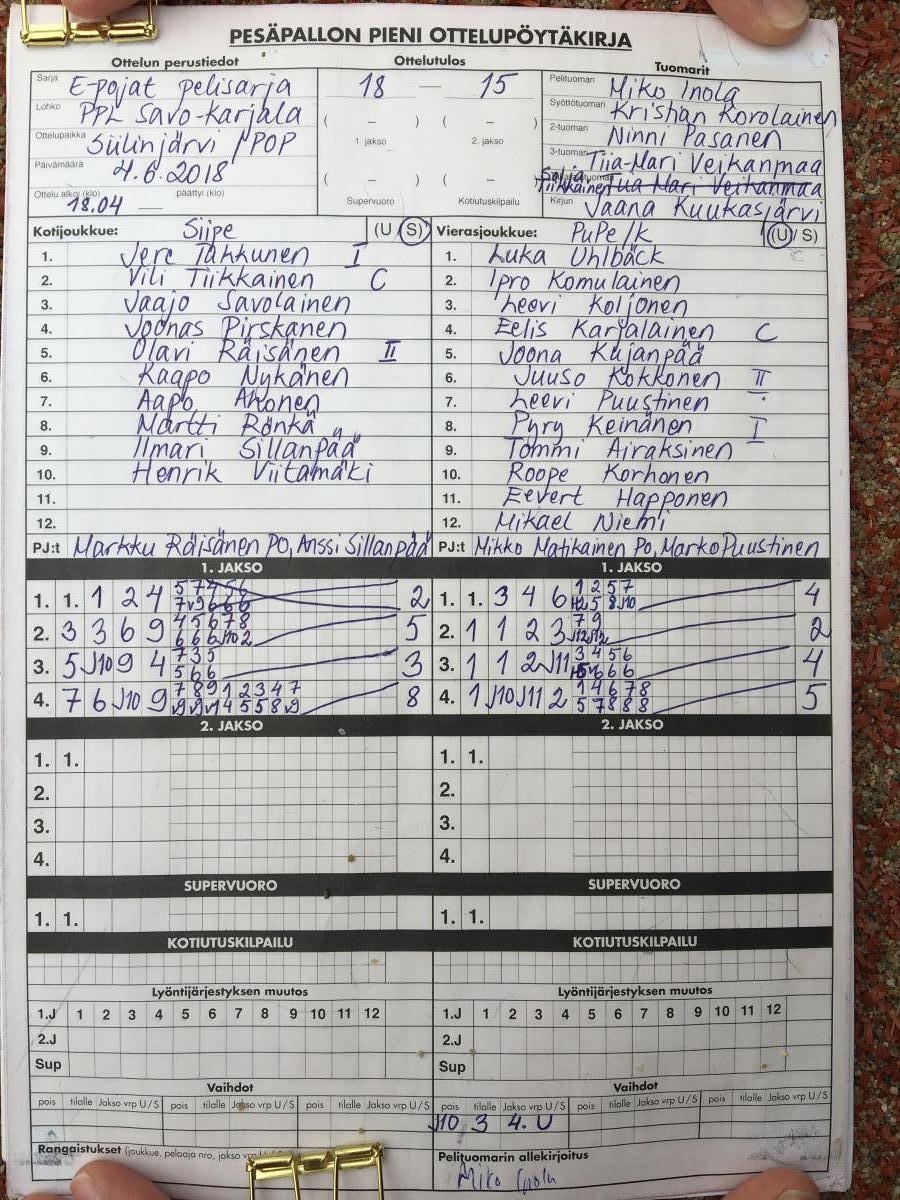 PESÄPALLON PIENI OTTELUPÖYTÄKIRJA
Ottelun perustiedot
Sarja E-pojat pelisarja
Lohko PPL Savo-karjala
Ottelupaikka Siilinjärvi / POP
Päivämäärä 4.6.2018
Ottelu alkoi (klo) päättyi (klo)
18.04
Ottelutulos
18 — 15
( – ) ( – )
1. jakso 2. jakso
( – ) ( – )
Supervuoro Kotiutuskilpailu
Tuomarit
Pelituomari Miko Inola
Syöttötuomari Kristian Korolainen
2-tuomari Ninni Pasanen
3-tuomari Tiia-Mari Veikanmaa
Tiikkainen Tiia-Mari Veikanmaa
Kirjuri Jaana Kuukasjärvi
Kotijoukkue: Siipe (U / S)
1. Jere Tahkunen I
2. Vili Tiikkainen C
3. Jaajo Savolainen
4. Joonas Pirskanen
5. Olavi Räisänen II
6. Kaapo Nykänen
7. Aapo Ahonen
8. Martti Rönkä
9. Ilmari Sillanpää
10. Henrik Viitamäki
11.
12.
PJ:t Markku Räisänen PO, Anssi Sillanpää
Vierasjoukkue: PuPe / k (U / S)
1. Luka Uhlbäck
2. Ipro Komulainen
3. Leevi Koljonen
4. Eelis Karjalainen C
5. Joona Kujanpää
6. Juuso Kokkonen II
7. Leevi Puustinen
8. Pyry Keinänen I
9. Tommi Airaksinen
10. Roope Korhonen
11. Eevert Happonen
12. Mikael Niemi
PJ:t Mikko Matikainen Po, Marko Puustinen
1. JAKSO
1. 1. 1 2 4 2
2. 3 3 6 9 5
3. 5 J10 9 4 3
4. 7 6 J10 9 8
1. JAKSO
1. 1. 3 4 6 4
2. 1 1 2 3 2
3. 1 1 2 J11 4
4. 1 J10 J11 2 5
2. JAKSO
1. 1.
2.
3.
4.
2. JAKSO
1. 1.
2.
3.
4.
SUPERVUORO
1. 1.
SUPERVUORO
1. 1.
KOTIUTUSKILPAILU
KOTIUTUSKILPAILU
Lyöntijärjestyksen muutos
1.J 1 2 3 4 5 6 7 8 9 10 11 12
2.J
Sup
Lyöntijärjestyksen muutos
1.J 1 2 3 4 5 6 7 8 9 10 11 12
2.J
Sup
Vaihdot
pois tilalle Jakso vrp U/S pois tilalle Jakso vrp U/S pois tilalle Jakso vrp U/S
Vaihdot
pois tilalle Jakso vrp U/S pois tilalle Jakso vrp U/S pois tilalle Jakso vrp U/S
J10 3 4. U
Rangaistukset (joukkue, pelaaja nro, jakso vrp U/S)
Pelituomarin allekirjoitus
Miko Inola